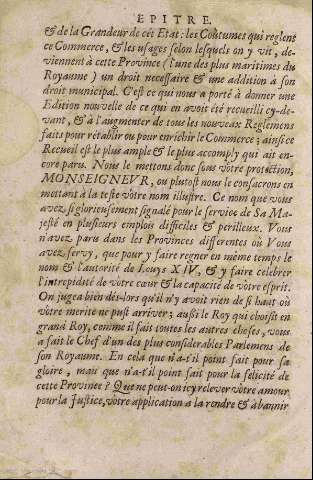 EPITRE.
& de la Grandeur de cét Etat: les Coûtumes qui reglent
ce Commerce, & les usages selon lesquels on y vit, de-
viennent à cette Province (l'une des plus maritimes du
Royaume) un droit necessaire & une addition à son
droit municipal. C'est ce qui nous a porté à donner une
Edition nouvelle de ce qui en avoit été recueilli cy-de-
vant, & à l'augmenter de tous les nouveaux Reglemens
faits pour rétablir ou pour enrichir le Commerce; ainsi ce
Recueil est le plus ample & le plus accomply qui ait en-
core paru. Nous le mettons donc sous vôtre protection,
MONSEIGNEUR, ou plutost nous le consacrons en
mettant à la teste vôtre nom illustre. Ce nom que vous
avez si glorieusement signalé pour le service de Sa Ma-
jesté en plusieurs emplois difficiles & perilleux. Vous
n'avez paru dans les Provinces differentes où Vous
avez servy, que pour y faire regner en même temps le
nom & l'autorité de Louys XIV, & y faire celebrer
l'intrepidité de vôtre cœur & la capacité de vôtre esprit.
On jugea bien dés-lors qu'il n'y avoit rien de si haut où
vôtre merite ne pust arriver; aussi le Roy qui choisit en
grand Roy, comme il fait toutes les autres choses, vous
a fait le Chef d'un des plus considerables Parlemens de
son Royaume. En cela que n'a-t'il point fait pour sa
gloire, mais que n'a-t'il point fait pour la felicité de
cette Province? Que ne peut-on icy relever vôtre amour
pour la Justice, vôtre application à la rendre & à bannir